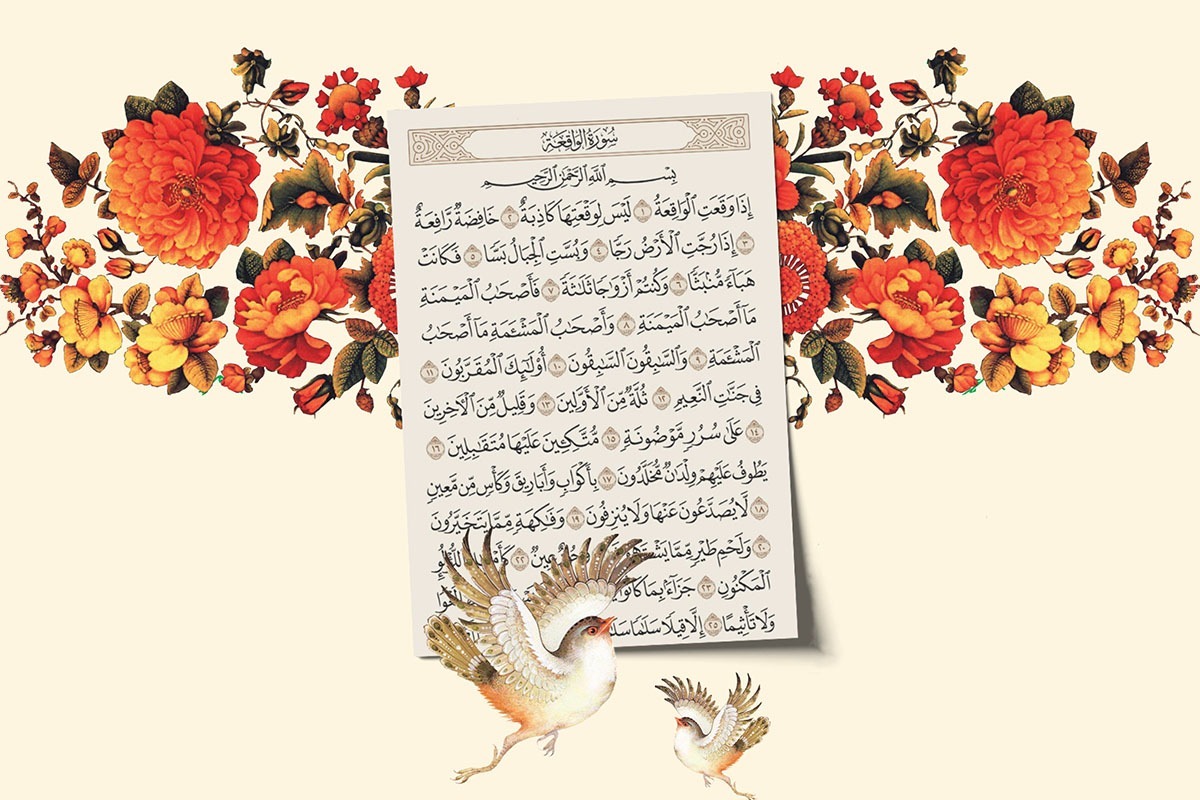 سُورَةُ الوَاقِعَةِ
بِسْمِ ٱللَّهِ ٱلرَّحْمَٰنِ ٱلرَّحِيمِ
إِذَا وَقَعَتِ ٱلْوَاقِعَةُ ١ لَيْسَ لِوَقْعَتِهَا كَاذِبَةٌ ٢ خَافِضَةٌ رَّافِعَةٌ
٣ إِذَا رُجَّتِ ٱلْأَرْضُ رَجًّا ٤ وَبُسَّتِ ٱلْجِبَالُ بَسًّا ٥ فَكَانَتْ
هَبَآءً مُّنۢبَثًّا ٦ وَكُنتُمْ أَزْوَٰجًا ثَلَٰثَةً ٧ فَأَصْحَٰبُ ٱلْمَيْمَنَةِ
مَآ أَصْحَٰبُ ٱلْمَيْمَنَةِ ٨ وَأَصْحَٰبُ ٱلْمَشْـَٔمَةِ مَآ أَصْحَٰبُ
ٱلْمَشْـَٔمَةِ ٩ وَٱلسَّٰبِقُونَ ٱلسَّٰبِقُونَ ١٠ أُو۟لَٰٓئِكَ ٱلْمُقَرَّبُونَ ١١
فِى جَنَّٰتِ ٱلنَّعِيمِ ١٢ ثُلَّةٌ مِّنَ ٱلْأَوَّلِينَ ١٣ وَقَلِيلٌ مِّنَ ٱلْءَاخِرِينَ
١٤ عَلَىٰ سُرُرٍ مَّوْضُونَةٍ ١٥ مُّتَّكِـِٔينَ عَلَيْهَا مُتَقَٰبِلِينَ ١٦
يَطُوفُ عَلَيْهِمْ وِلْدَٰنٌ مُّخَلَّدُونَ ١٧ بِأَكْوَابٍ وَأَبَارِيقَ وَكَأْسٍ مِّن مَّعِينٍ
١٨ لَّا يُصَدَّعُونَ عَنْهَا وَلَا يُنزِفُونَ ١٩ وَفَٰكِهَةٍ مِّمَّا يَتَخَيَّرُونَ
٢٠ وَلَحْمِ طَيْرٍ مِّمَّا عِينٌ ٢٢
ٱلْمَكْنُونِ ٢٣ جَزَآءًۢ بِمَا كَانُوا۟
وَلَا تَأْثِيمًا ٢٥ إِلَّا قِيلًا سَلَٰمًا